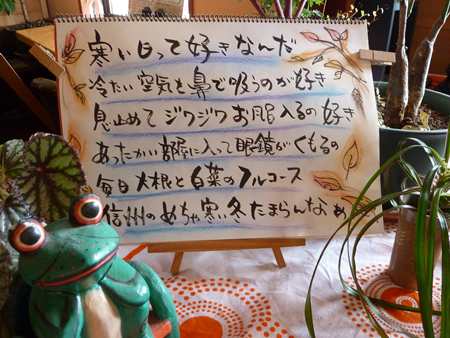 寒い日って好きなんだ
冷たい空気を鼻で吸うのが好き
見止めてジワジワお風呂入るの好き
あったかい部屋に入って眼鏡がくもるの
毎日大根と白菜のフルコース
信州のめちゃ寒い冬たまらんなぁ